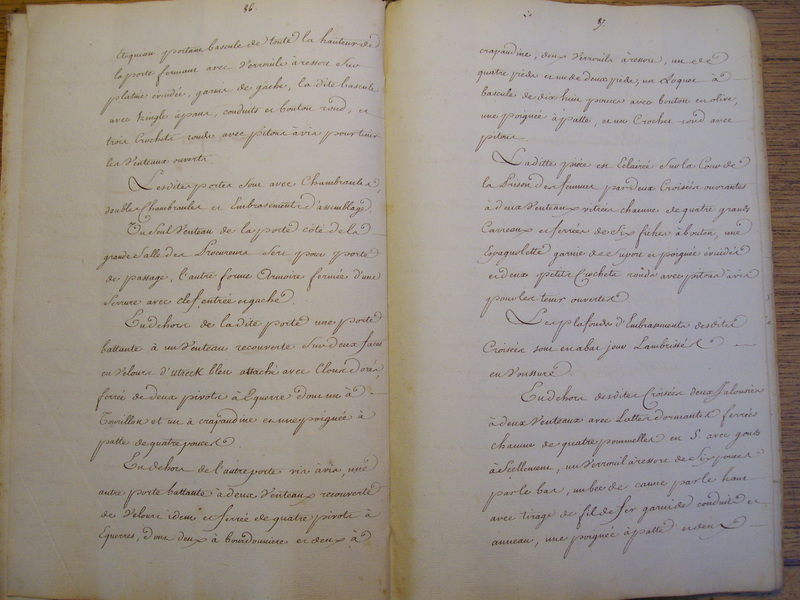 86.
portant bascule de toute la hauteur de
la porte fermant avec Verrouils à ressort sur
platine évuidée, garnie de gâche, la dite bascule
avec tringle à pans, conduits et bouton rond, et
trois Crochets ronds avec pitons à vis pour tenir
les Venteaux ouverts.
Lesdites portes sont avec Chambranles,
doubles Chambranles et Embrasements d'assemblage.
Un seul Venteau de la porte côté de la
grande Salle des Procureurs sert pour porte
de passage, l'autre forme Armoire fermée d'une
Serrure avec clef entrée et gâche.
En dehors de la dite porte une porte
battante à un Venteau recouverte sur deux faces
en Velours d'utreck bleu attaché avec Cloux dorés,
ferrée de deux pivots à Equerre dont un à
Tourillon et un à crapaudine et une poignée à
patte de quatre pouces.
En dehors de l'autre porte vis à vis, une
autre porte battante à deux Venteaux recouverte
de Velours idem et ferrée de quatre pivots à
Equerres, dont deux à bourdonniere et deux à
87.
crapaudine, deux Verrouils à ressort, un de
quatre pieds et un de deux pieds, un Loquet à
bascule de dix huit pouces avec bouton en olive,
une poignée à patte, et un Crochet rond avec
pitons.
Laditte pièce est Eclairée sur la Cour de
la Prison des femmes par deux Croisées ouvrantes
à deux Venteaux vitrées chacune de quatre grands
Carreaux et ferrées de Six fiches à bouton, une
Espagnolette garnie de Suport et poignée évuidée
et deux petits Crochets ronds avec pitons à vis
pour les tenir ouvertes.
Les plafonds d'Embrasements desdites
Croisées sont en abat jour Lambrissés
en Voussure.
En dehors desdites Croisées deux Jalousies
à deux Venteaux avec Lattes dormantes ferrées
chacune de quatre pommelles en S. avec gonds
à scellement, un Verrouil à ressort de Six pouces
par le bas, un bec de canne par le haut
avec tirage de fil de fer garni de conduits et
anneau, une poignée à patte et deux